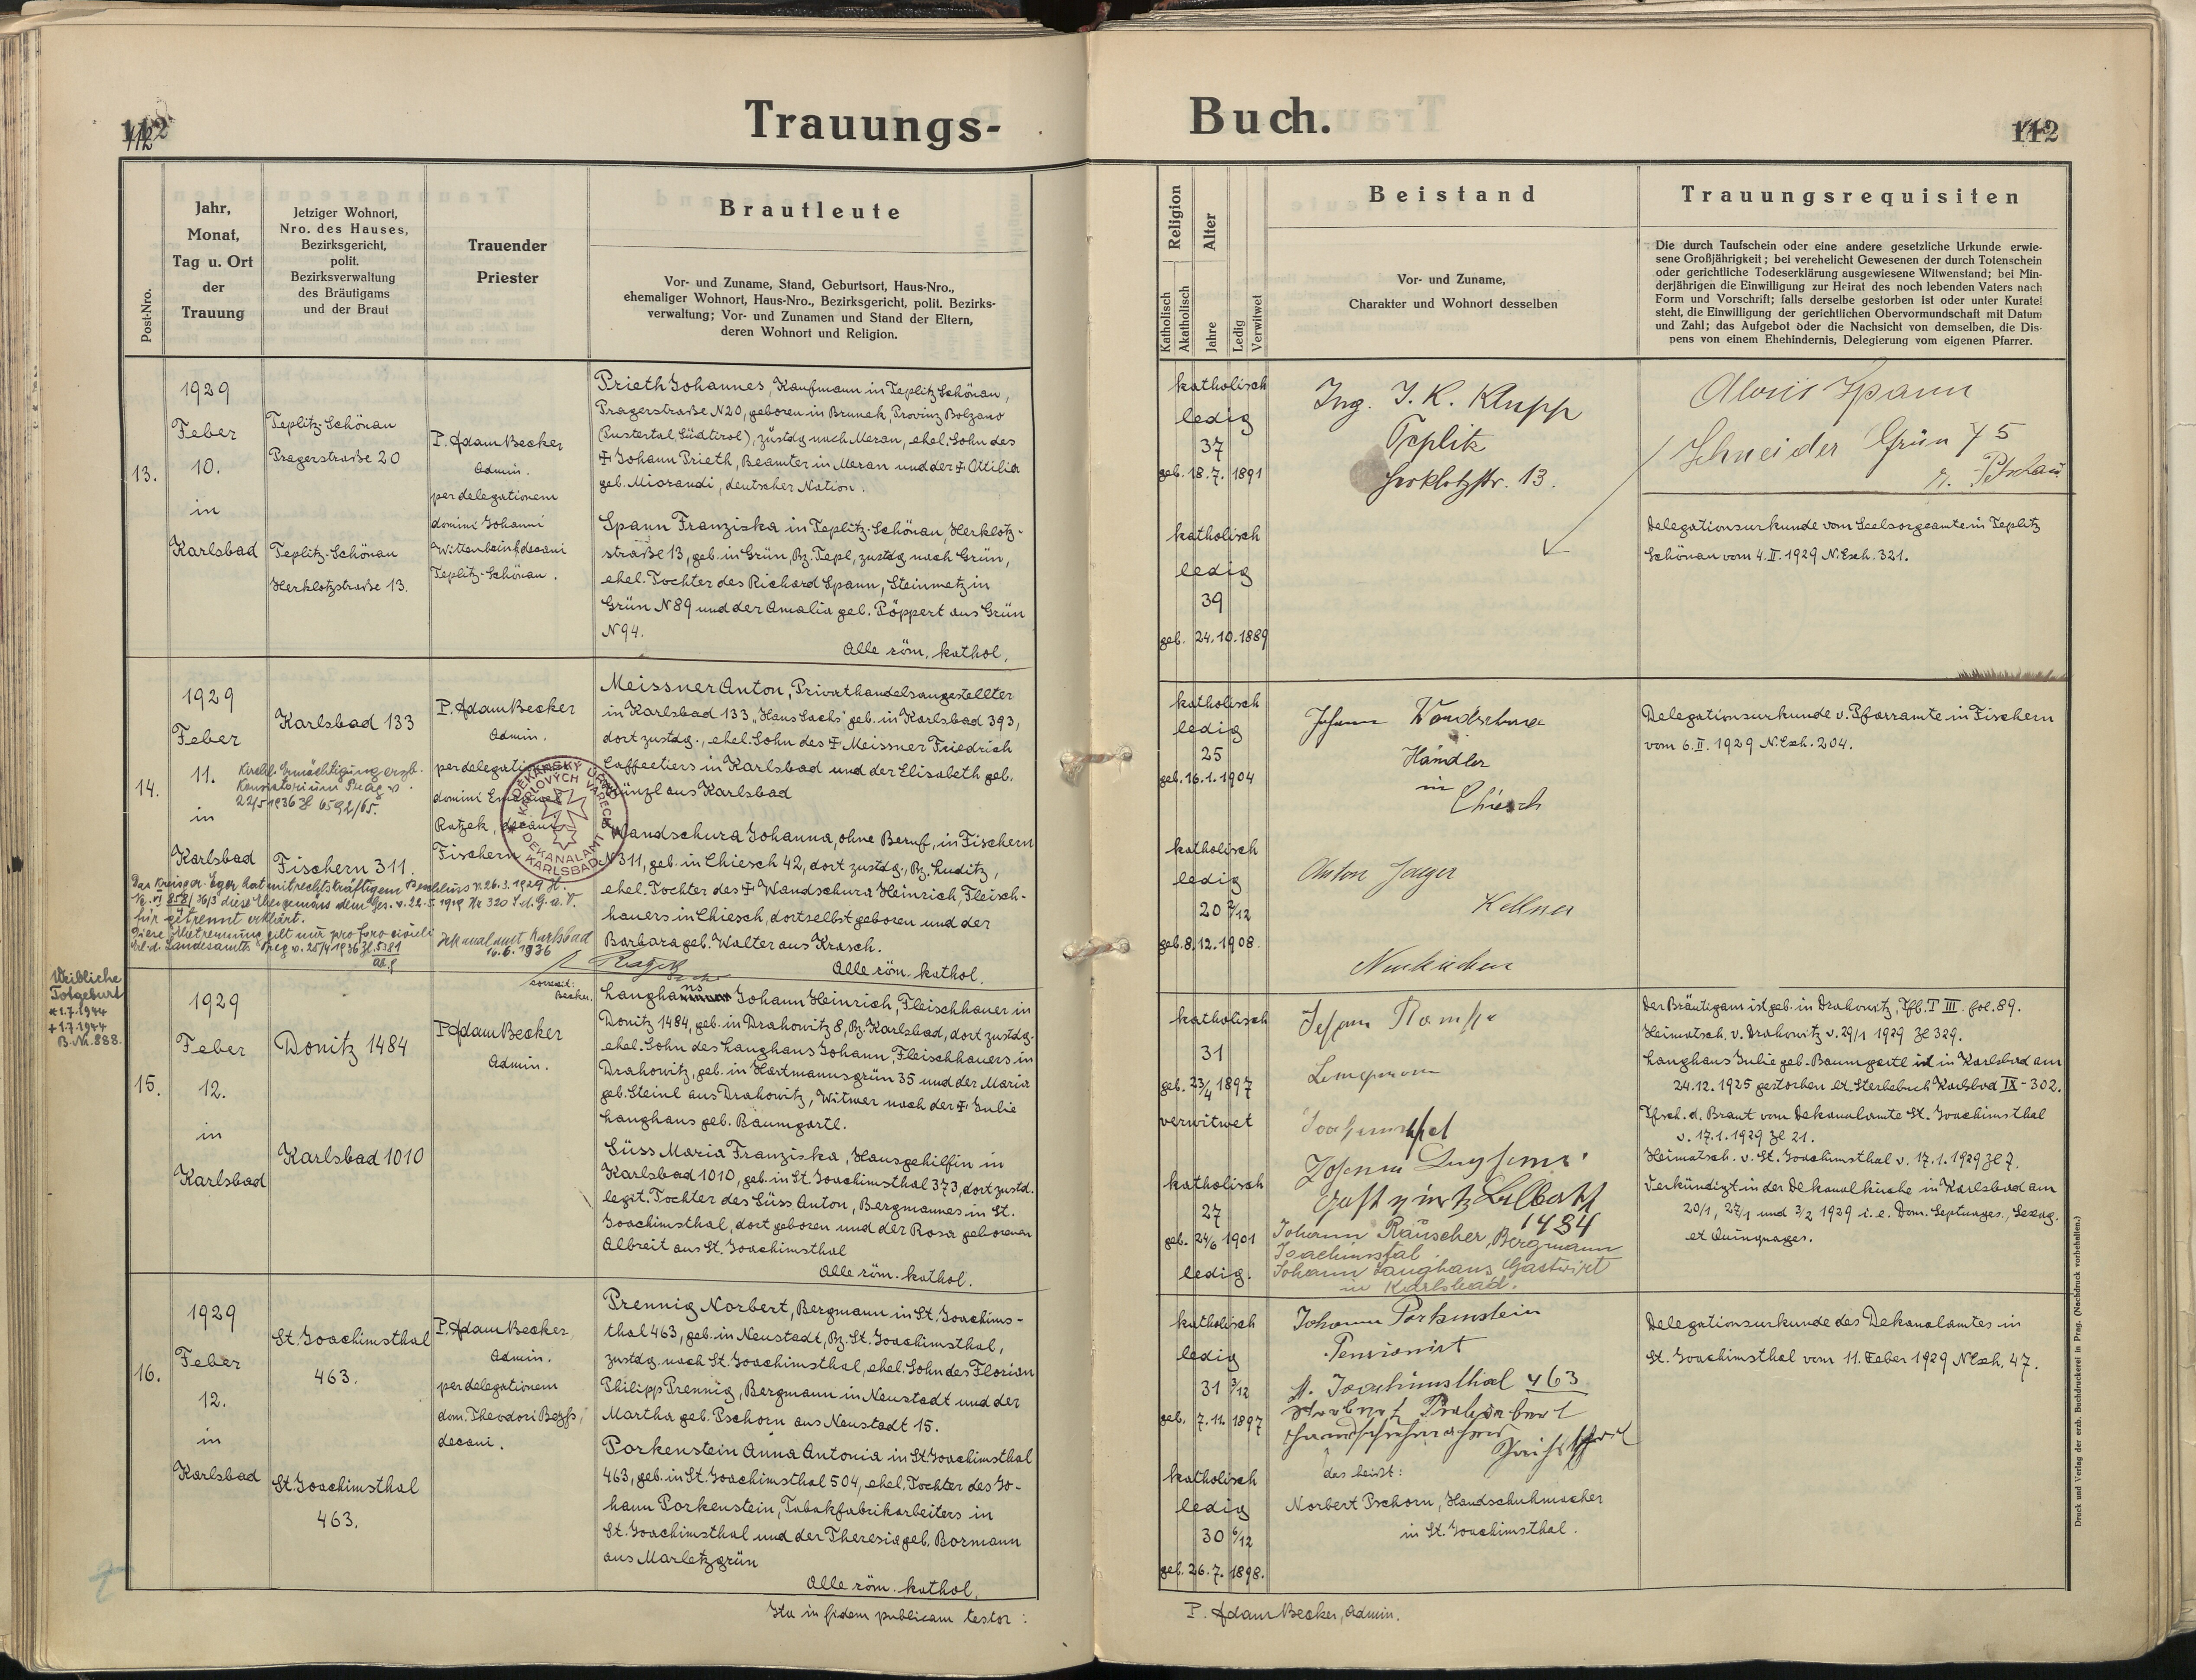 112
Trauungs-
Post-Nro.
Jahr,
Monat,
Tag u. Ort
der
Trauung
Jetziger Wohnort,
Nro. des Hauses,
Bezirksgericht,
polit.
Bezirksverwaltung
des Bräutigams
und der Braut
Trauender
Priester
Brautleute
Vor- und Zuname, Stand, Geburtsort, Haus-Nro.,
ehemaliger Wohnort, Haus-Nro., Bezirksgericht, polit. Bezirks-
verwaltung; Vor- und Zunamen und Stand der Eltern,
deren Wohnort und Religion.
13.
1929
Feber
10.
in
Karlsbad
Teplitz-Schönau
Pragerstraße 20
Teplitz-Schönau
Herklotzstraße 13.
P. Adam Becker
Admin.
per delegationem
domini Johanni
decani
Teplitz-Schönau.
Prieth Johannes, Kaufmann in Teplitz Schönau,
Pragerstraße N20, geboren in Brunek, Provinz Bolzano
(Pustertal, Südtirol), zustdg nach Meran, ehel. Sohn des
Johann Prieth, Beamter in Meran und der Ottilia
geb. Miorandi, deutscher Nation.
Spann Franziska in Teplitz-Schönau, Herklotz-
straße 13, geb. in Grün, Bz. Tepl, zustdg nach Grün,
ehel. Tochter des Richard Spann, Steinmetz in
Grün N89 und der Amalia geb. Pöppert aus Grün
N94.
Alle röm. kathol.
14.
1929
Feber
11.
in
Karlsbad
Kirchl. Ermächtigung erzb.
Konsistorium Prag v.
22/5 1936 Zl 6592/65.
Karlsbad 133
Fischern 311.
P. Adam Becker
Admin.
per delegationem
domini
Ratzek, decani
Fischern
DĚKANSKÝ ÚŘAD
KARLOVÝCH VARECH
DEKANALAMT
KARLSBAD
Meissner Anton, Privathandelsangestellter
in Karlsbad 133 "Hans Sachs" geb. in Karlsbad 393,
dort zustdg., ehel. Sohn des Meissner Friedrich
Caffeetiers in Karlsbad und der Elisabeth geb.
Künzl aus Karlsbad
Wandschura Johanna, ohne Beruf, in Fischern
N311, geb. in Chiesch 42, dort zustdg., Bz. Luditz,
ehel. Tochter des Wandschura Heinrich, Fleisch-
hauers in Chiesch, dortselbst geboren und der
Barbara geb. Walter aus Krasch.
Alle röm. kathol.
Das Kreisger. Eger hat mit rechtskräftigem Beschluss v. 26.3.1929
diese Ehe gemäss dem Ges. v. 22.5.1919 Nr 320 S.d.G.u.V.
für getrennt erklärt.
Diese Ehetrennung gilt nur pro foro civili
Erl. d. Landesamtes Prag v. 25/4 1936 Zl. 5381
Dekanalamt Karlsbad
10.6.1936
Weibliche
Totgeburt
*1.7.1944
+1.7.1944
B.Nr. 888.
15.
1929
Feber
12.
in
Karlsbad
Donitz 1484
Karlsbad 1010
P. Adam Becker
Admin.
Becker.
Langhans Johann Heinrich, Fleischhauer in
Donitz 1484, geb. in Drahowitz 8, Bz. Karlsbad, dort zustdg.
ehel. Sohn des Langhans Johann, Fleischhauers in
Drahowitz, geb. in Hartmannsgrün 35 und der Maria
geb. Steinl aus Drahowitz, Witwer nach der Julie
Langhans geb. Baumgartl.
Süss Maria Franziska, Hausgehilfin in
Karlsbad 1010, geb. in St. Joachimsthal 373, dort zustd.
legit. Tochter des Süss Anton, Bergmannes in St.
Joachimsthal, dort geboren und der Rosa geborenen
Albreit aus St. Joachimsthal
Alle röm. kathol.
16.
1929
Feber
12.
in
Karlsbad
St. Joachimsthal
463.
St. Joachimsthal
463.
P. Adam Becker,
Admin.
per delegationem
dom. Theodori
decani.
Prennig Norbert, Bergmann in St. Joachims-
thal 463, geb. in Neustadt, Bz. St. Joachimsthal,
zustdg. nach St. Joachimsthal, ehel. Sohn des Florian
Philipp Prennig, Bergmann in Neustadt und der
Martha geb. Pschorn aus Neustadt 15.
Porkenstein Anna Antonia in St. Joachimsthal
463, geb. in St. Joachimsthal 504, ehel. Tochter des Jo-
hann Porkenstein, Tabakfabrikarbeiters in
St. Joachimsthal und der Theresia geb. Bormann
aus Marletzgrün
Alle röm. kathol.
Ita in fidem publicam testor:
Buch.
112
Religion
Katholisch
Akatholisch
Alter
Jahre
Ledig
Verwitwet
Beistand
Vor- und Zuname,
Charakter und Wohnort desselben
Trauungsrequisiten
Die durch Taufschein oder eine andere gesetzliche Urkunde erwie-
sene Großjährigkeit; bei verehelicht Gewesenen der durch Totenschein
oder gerichtliche Todeserklärung ausgewiesene Witwenstand; bei Min-
derjährigen die Einwilligung zur Heirat des noch lebenden Vaters nach
Form und Vorschrift; falls derselbe gestorben ist oder unter Kuratel
steht, die Einwilligung der gerichtlichen Obervormundschaft mit Datum
und Zahl; das Aufgebot oder die Nachsicht von demselben, die Dis-
pens von einem Ehehindernis, Delegierung vom eigenen Pfarrer.
katholisch
ledig
37
geb. 18.7. 1891
katholisch
ledig
39
geb. 24.10.1889
Ing. J. K. Klupp
Teplitz
Herklotzstr. 13.
Alois Spann
Schneider Grün 75
Petschau
Delegationsurkunde vom Seelsorgeamte in Teplitz
Schönau vom 4.II.1929 N.Exh. 321.
katholisch
ledig
25
geb. 16.1.1904
katholisch
ledig
20 2/12
geb. 8.12.1908
Johann Wandschura
Händler
in
Chiesch
Anton Jaeger
Kellner
Neukirchen
Delegationsurkunde v. Pfarramte in Fischern
vom 6.II.1929 N.Exh. 204.
katholisch
31
geb. 23/4 1897
verwitwet
katholisch
27
geb. 24/6 1901
ledig.
Joachimsthal
1484
Johann Rauscher, Bergmann
Joachimsthal
Johann Langhans Gastwirt
in Karlsbad.
Der Bräutigam ist geb. in Drahowitz, Tfb. T III. fol. 89.
Heimatsch. v. Drahowitz v. 29/1 1929 Zl 329.
Langhans Julie geb. Baumgartl ist in Karlsbad am
24.12.1925 gestorben lt. Sterbebuch Karlsbad IX - 302.
Tfsch. d. Braut vom Dekanalamte St. Joachimsthal
v. 17.1.1929 Zl 21.
Heimatsch. v. St. Joachimsthal v. 17.1.1929 Zl 7.
Verkündigt in der Dekanalkirche in Karlsbad am
20/1, 27/1 und 3/2 1929 i.e. Dom. Septuages., Sexag.
et Quinquages.
katholisch
ledig
31 3/12
geb. 7.11.1897
katholisch
ledig
30 6/12
geb. 26.7.1898.
Johann Porkenstein
Pensionist
St. Joachimsthal 463
das heißt:
Norbert Pschorn, Handschuhmacher
in St. Joachimsthal.
Delegationsurkunde des Dekanalamtes in
St. Joachimsthal vom 11. Feber 1929 N Exh. 47.
P. Adam Becker, Admin.
Druck und Verlag der erzb. Buchdruckerei in Prag. (Nachdruck vorbehalten.)